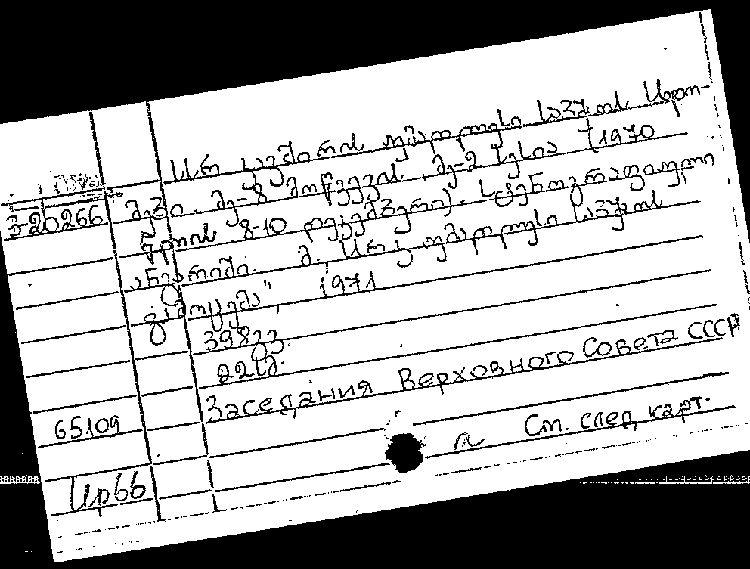 სსრ კავშირის უმაღლესი საბჭოს სხდო-
მები. მე-8 მოწვევის. მე-2 სესია (1970
3-20266
წლის 8-10 დეკემბერი). სტენოგრაფიული
ანგარიში. მ., სსრკ უმაღლესი საბჭოს
გამოცემა", 1971
398გვ.
22ც.
Заседания Верховного Совета СССР
65109
См. след карт.